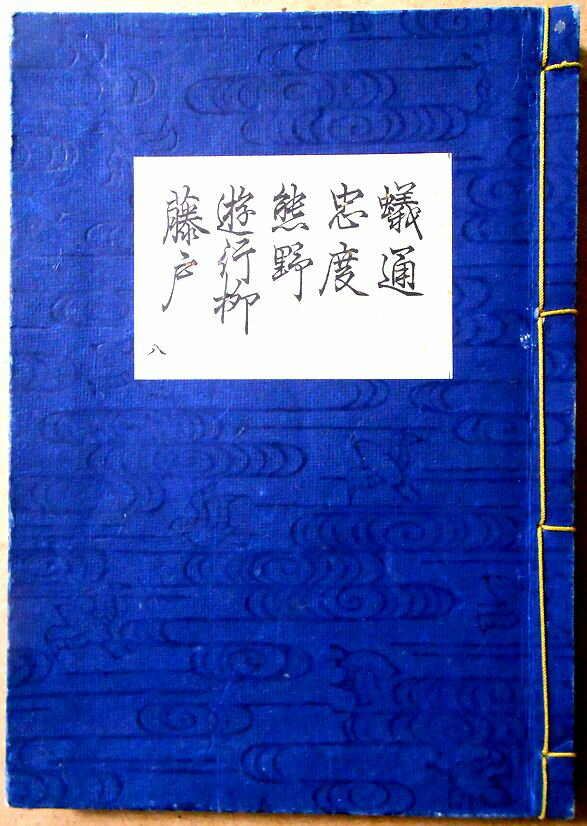 蟻通
忠度
熊野
遊行柳
藤戸
八